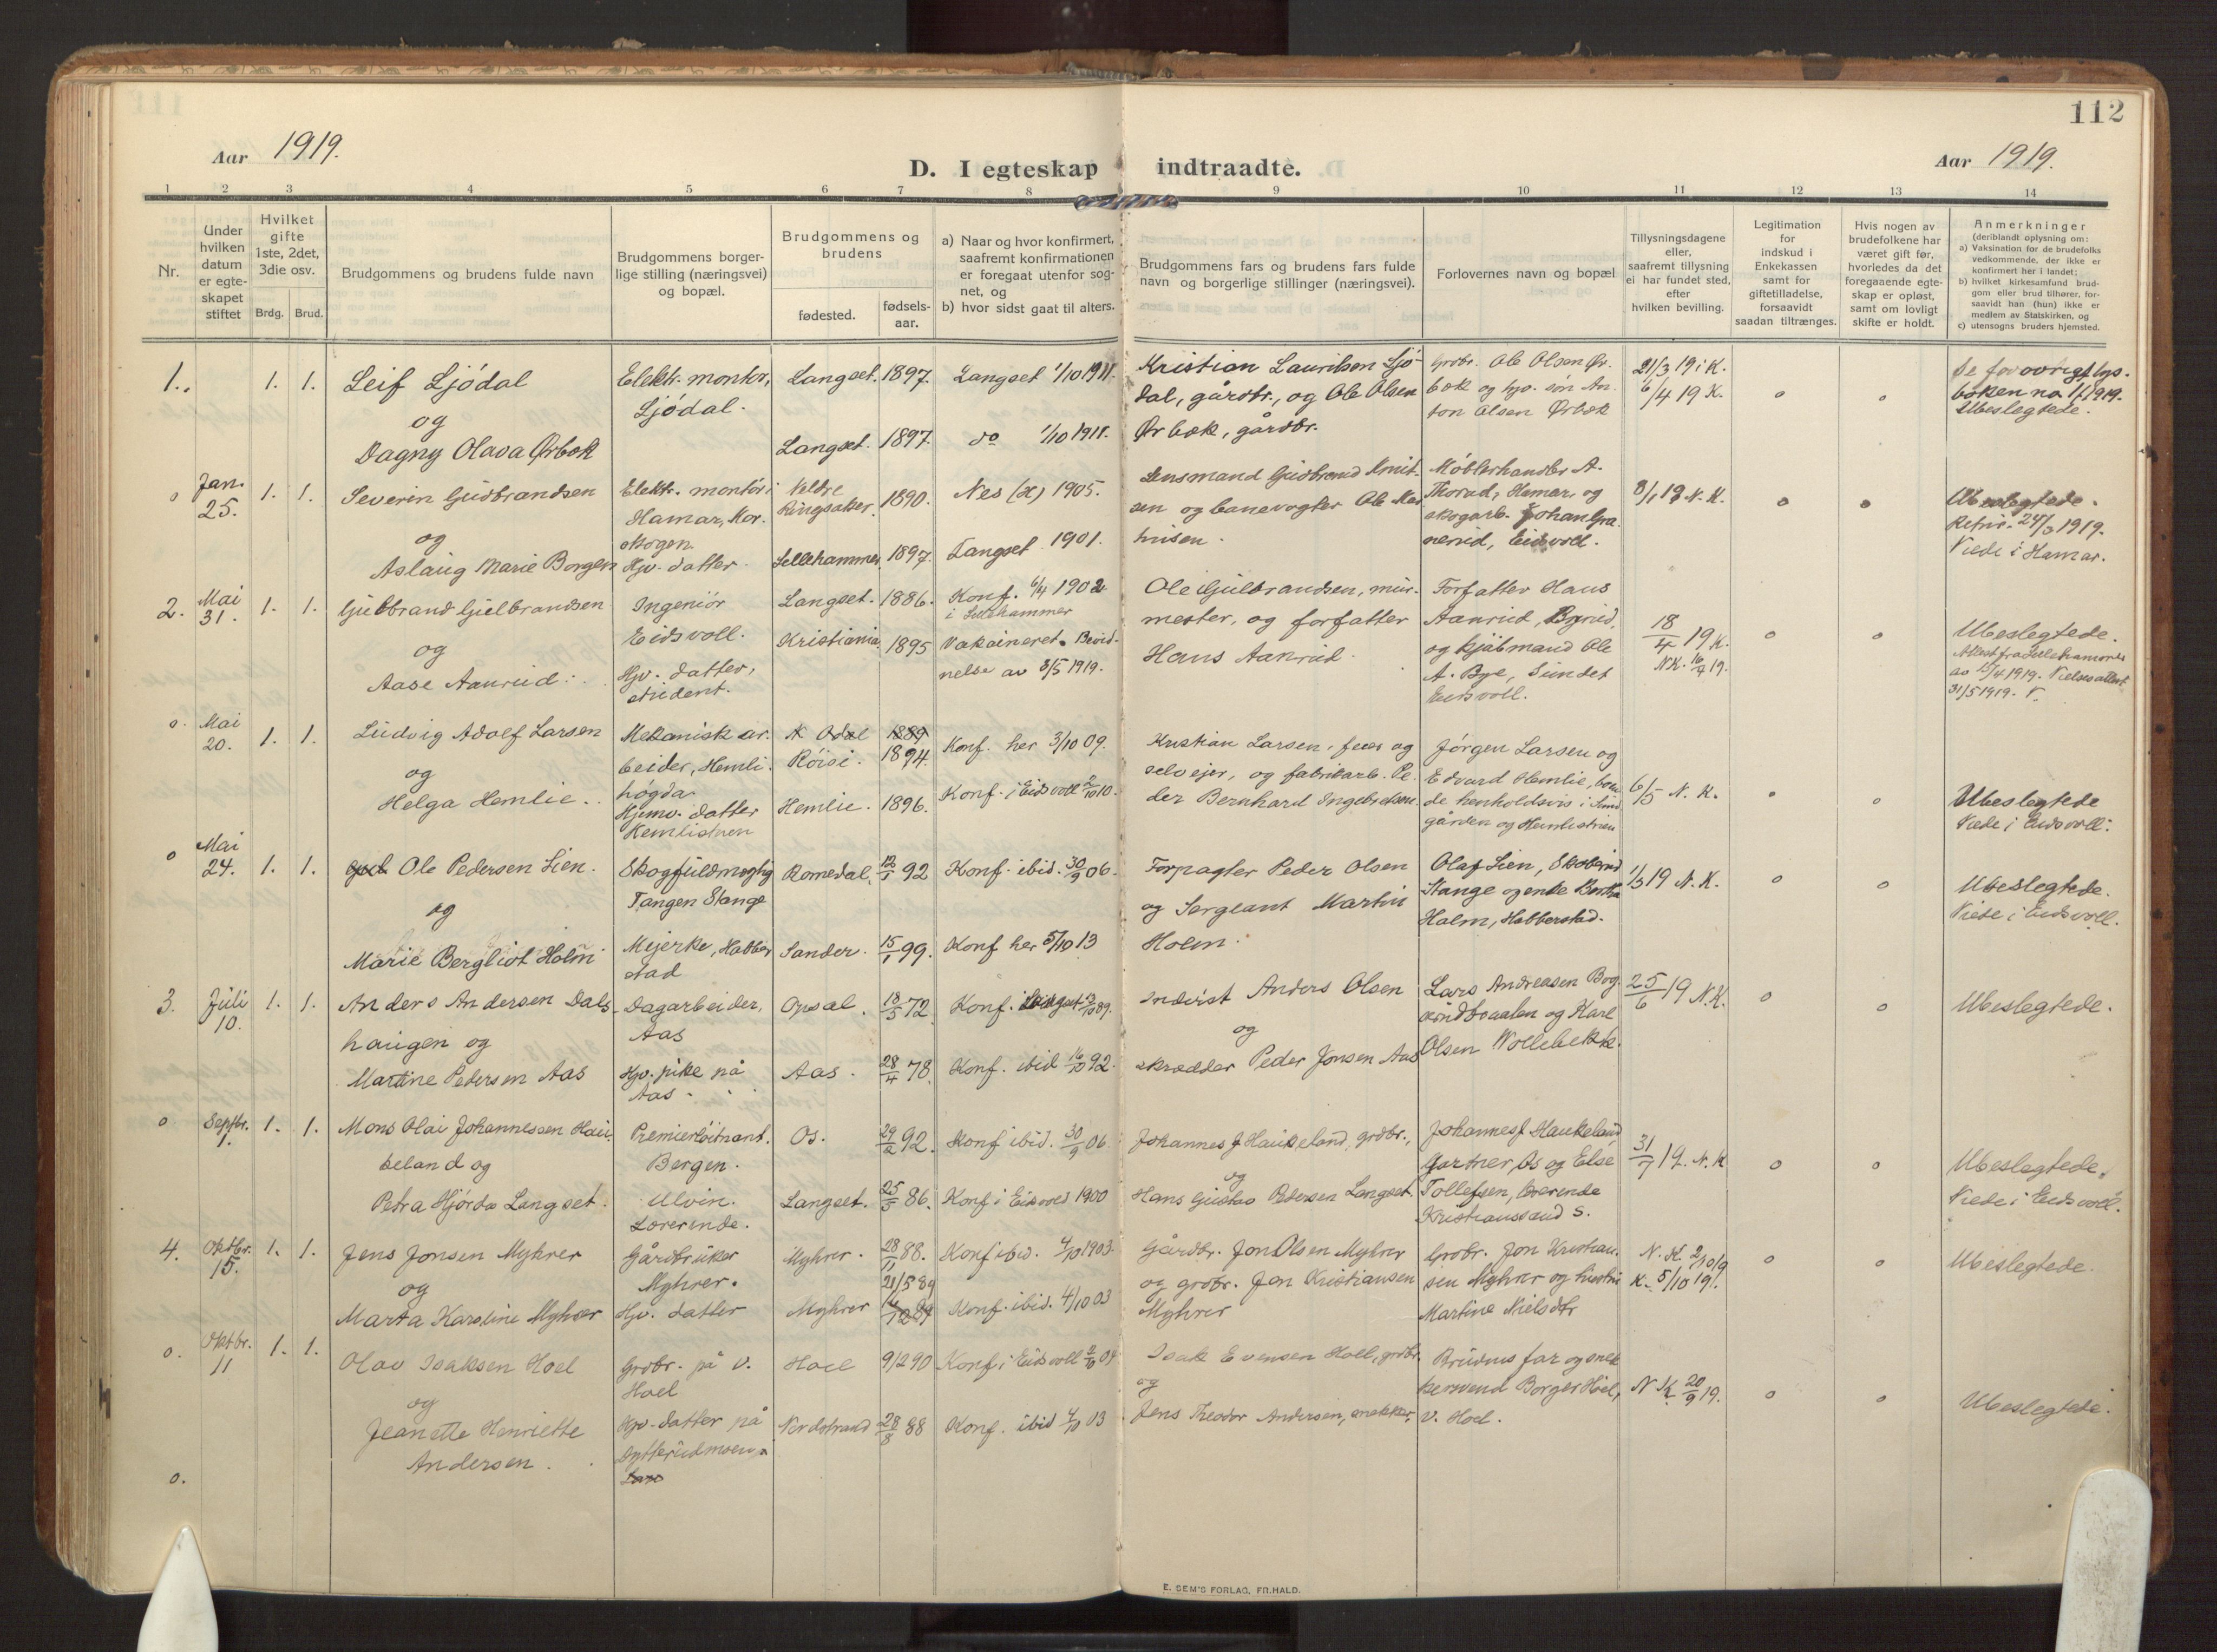 112
Aar 1919.
D. I egteskap indtraadte.
Aar 1919.
1 2 3 4 5 6 7 8 9 10 11 12 13 14
Nr.
Under hvilken datum er egte-skapet stiftet
Hvilket gifte 1ste, 2det, 3die osv.
Brdg. Brud.
Brudgommens og brudens fulde navn
Brudgommens borger-lige stilling (næringsvei) og bopæl.
Brudgommens og brudens
fødested.
fødsels-aar.
a) Naar og hvor konfirmert, saafremt konfirmationen er foregaat utenfor sog-net, og
b) hvor sidst gaat til alters.
Brudgommens fars og brudens fars fulde navn og borgerlige stillinger (næringsvei).
Forlovernes navn og bopæl
Tillysningsdagene eller, saafremt tillysning ei har fundet sted, efter hvilken bevilling.
Legitimation for indskud i Enkekassen samt for giftetilladelse, forsaavidt saadan tiltrænges.
Hvis nogen av brudefolkene har været gift før, hvorledes da det foregaaende egte-skap er opløst, samt om lovligt skifte er holdt.
Anmerkninger
(deriblandt oplysning om:
a) Vaksination for de brudefolks vedkommende, der ikke er konfirmert her i landet;
b) hvilket kirkesamfund brud-gom eller brud tilhører, for-saavidt han (hun) ikke er medlem av Statskirken, og
c) utensogns bruders hjemsted.
1. 1. 1. Leif Ljódal
og
Dagny Olava Ørbæk
Elektr. montør,
Ljódal.
Langset. 1897. Langset 1/10 1911.
Langset. 1897. do 1/10 1911.
Kristian Lauritsen Ljó-
dal, gårdbr., og Ole Olsen
Ørbæk, gårdbr.
Grdbr. Ole Olsen Ør-
bæk og hjv. søn An-
ton Olsen Ørbæk
21/3 19 i K.
6/4 19 K.
o o
Ubeslegtede.
o Jan. 25. 1. 1. Severin Gudbrandsen
og
Aslaug Marie Borgen
Elektr. montør i
Hamar,
Hjv. datter
Veldre
Ringsaker. 1890. Nes (H) 1905.
Lillehammer 1897. Langset 1901.
Lensmand Gudbrand Knut-
sen og banevogter Ole
Møblerhandler A.
Thorud, Hamar, og
skogarb. Johan Gra-
nerud, Eidsvoll.
8/1 19 N. K.
o o
Ubeslegtede.
Retur. 24/3 1919.
Viede i Hamar.
2. Mai 31. 1. 1. Gulbrand Gulbrandsen
og
Aase Aanrud.
Ingeniør
Eidsvoll.
Hjv. datter,
student.
Langset. 1886. Konf. 6/4 1902
i Lillehammer
Kristiania 1895 Vaksineret. Bevid-
nelse av 8/5 1919.
Ole Gulbrandsen, mur-
mester, og forfatter
Hans Aanrud.
Forfatter Hans
Aanrud,
og kjøbmand Ole
A. Bye, Sundet
Eidsvoll.
18/4 19 K.
o o
Ubeslegtede.
Attest fra Lillehammer
av 15/4 1919. Vielsesattest
31/5 1919.
o. Mai 20. 1. 1. Ludvig Adolf Larsen
og
Helga Hemlie.
Mekanisk ar-
beider, Hemli-
høgda
Hjemv. datter
Hemlistuen
N Odal 1889
Røisi. 1894. Konf. her 3/10 09.
Hemlie. 1896. Konf. i Eidsvoll 2/10 10.
Kristian Larsen, feier og
selveier, og fabrikarb. Pe-
der Bernhard Ingebretsen.
Jørgen Larsen og
Edvard Hemlie, boen-
de henholdsvis i Sund-
gården og Hemlistuen
6/5 N. K.
o o
Ubeslegtede
Viede i Eidsvoll.
o Mai 24. 1. 1. Ole Pedersen Lien.
og
Marie Bergliot Holm
Skogfuldmegtig
Tangen Stange
Meierske, Habber-
stad
Romedal, 12/1 92 Konf. ibid. 30/9 06.
Sander. 15/1 99. Konf. her 5/10 13
Forpagter Peder Olsen
og Sergeant Martin
Holm.
Olaf Lien,
Stange og enke Bertha
Holm, Habberstad.
1/5 19 N. K.
o o
Ubeslegtede.
Viede i Eidsvoll.
3. Juli 10. 1. 1. Anders Andersen Dals-
haugen og
Martine Pedersen Aas
Dagarbeider,
Aas
Hjv. pike på
Aas.
Opsal. 18/5 72. Konf. Langset 89.
Aas. 28/4 78. Konf. ibid 16/10 92.
Inderst Anders Olsen
og
skrædder Peder Jonsen Aas
Lars Andreasen
og Karl
Olsen Vollebekk.
25/6 19 N.K.
o o
Ubeslegtede.
o Septbr. 1. 1. 1. Mons Olai Johannessen Hau-
keland og
Petra Hjørdis Langset.
Premierløitnant.
Bergen.
Ulvin.
Lærerinde.
Os. 29/2 92. Konf ibid. 30/9 06.
Langset. 25/5 86. Konf i Eidsvold 1900
Johannes J Haukeland, grdbr.,
og
Hans Gustav Pedersen Langset.
Johannes J Haukeland
Gartner, Os og Else
Tollefsen, lærerinde
Kristianssand S.
31/7 19. N. K
o o
Ubeslegtede.
Viede i Eidsvoll.
4. Oktbr. 15. 1. 1. Jens Jonsen Myhrer
og
Marta Karoline Myhrer
Gårdbruker
Myhrer.
Hjv. datter
Myhrer. 28/11 88. Konf ibid. 4/10 1903.
21/5 89
Myhrer Konf. ibid. 4/10 03
Gårdbr. Jon Olsen Myhrer
og grdbr. Jon Kristiansen
Myhrer
Grdbr. Jon Kristian-
sen Myhrer og hustru
Martine Nielsdtr
N. K.
K. 5/10 19.
o o
Ubeslegtede.
o. Oktbr. 11 1. 1. Olav Isaksen Hoel
og
Jeanette Henriette
Andersen.
Grdbr. på v.
Hoel
Hjv. datter på
Hoel 9/2 90 Konf i Eidsvoll 04
Nordstrand 28/8 88 Konf. ibid 4/10 03
Isak Evensen Hoel, grdbr.
og
Jens Theodor Andersen, snekker.
Brudens far og snek-
kersvend Borger Hoel,
v. Hoel.
N K. 20/9 19.
o o
Ubeslegtede.
o.
E. SEM'S FORLAG, FR.HALD.